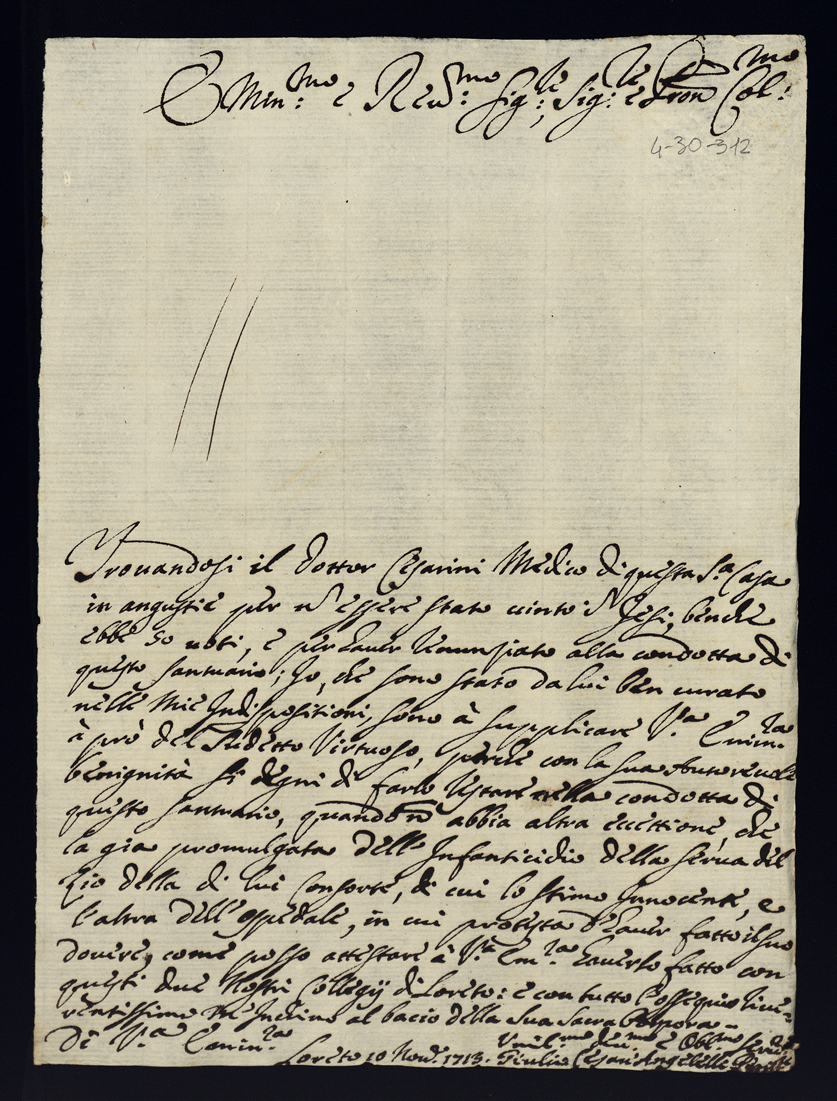 Emin:mo e Reu:mo Sig:re, Sig:re e Pron Col:mo
4-30-312
Trouandosi il Dottor Cesarini Medico di questa S.a Casa
in angustie per nō essere stato uinto ī Jesi, benche
ebbe 50 uoti, e per hauer renunziato alla condotta di
questo Santuario; Io, che sono stato da lui ben curato
nelle mie Indispositioni, sono à supplicare V.a Emin:za
à prò del sudetto Virtuoso, perche con la sua Autoreuole
benignità si degni di farlo restare nella condotta di
questo Santuario, quando nō abbia altra eccettione, che
la gia promulgata dell'Infanticidio della Serua del
Zio della di lui Consorte, di cui lo stimo Innocente, e
l'altra dell'Ospedale, in cui protesta d'hauer fatto il suo
douere, come posso attestare à V.a Em.za hauerlo fatto con
questi due Nostri Collegij di Loreto: e con tutto l'ossequio riue-
rentissimo m'Inchino al bacio della Sua Sacra Porpora-
Di V.a Emin.za
Loreto 10 Nou.e 1713. Vmil:mo Diu:mo e Obl:mo
Giulio Cesare Angelelli